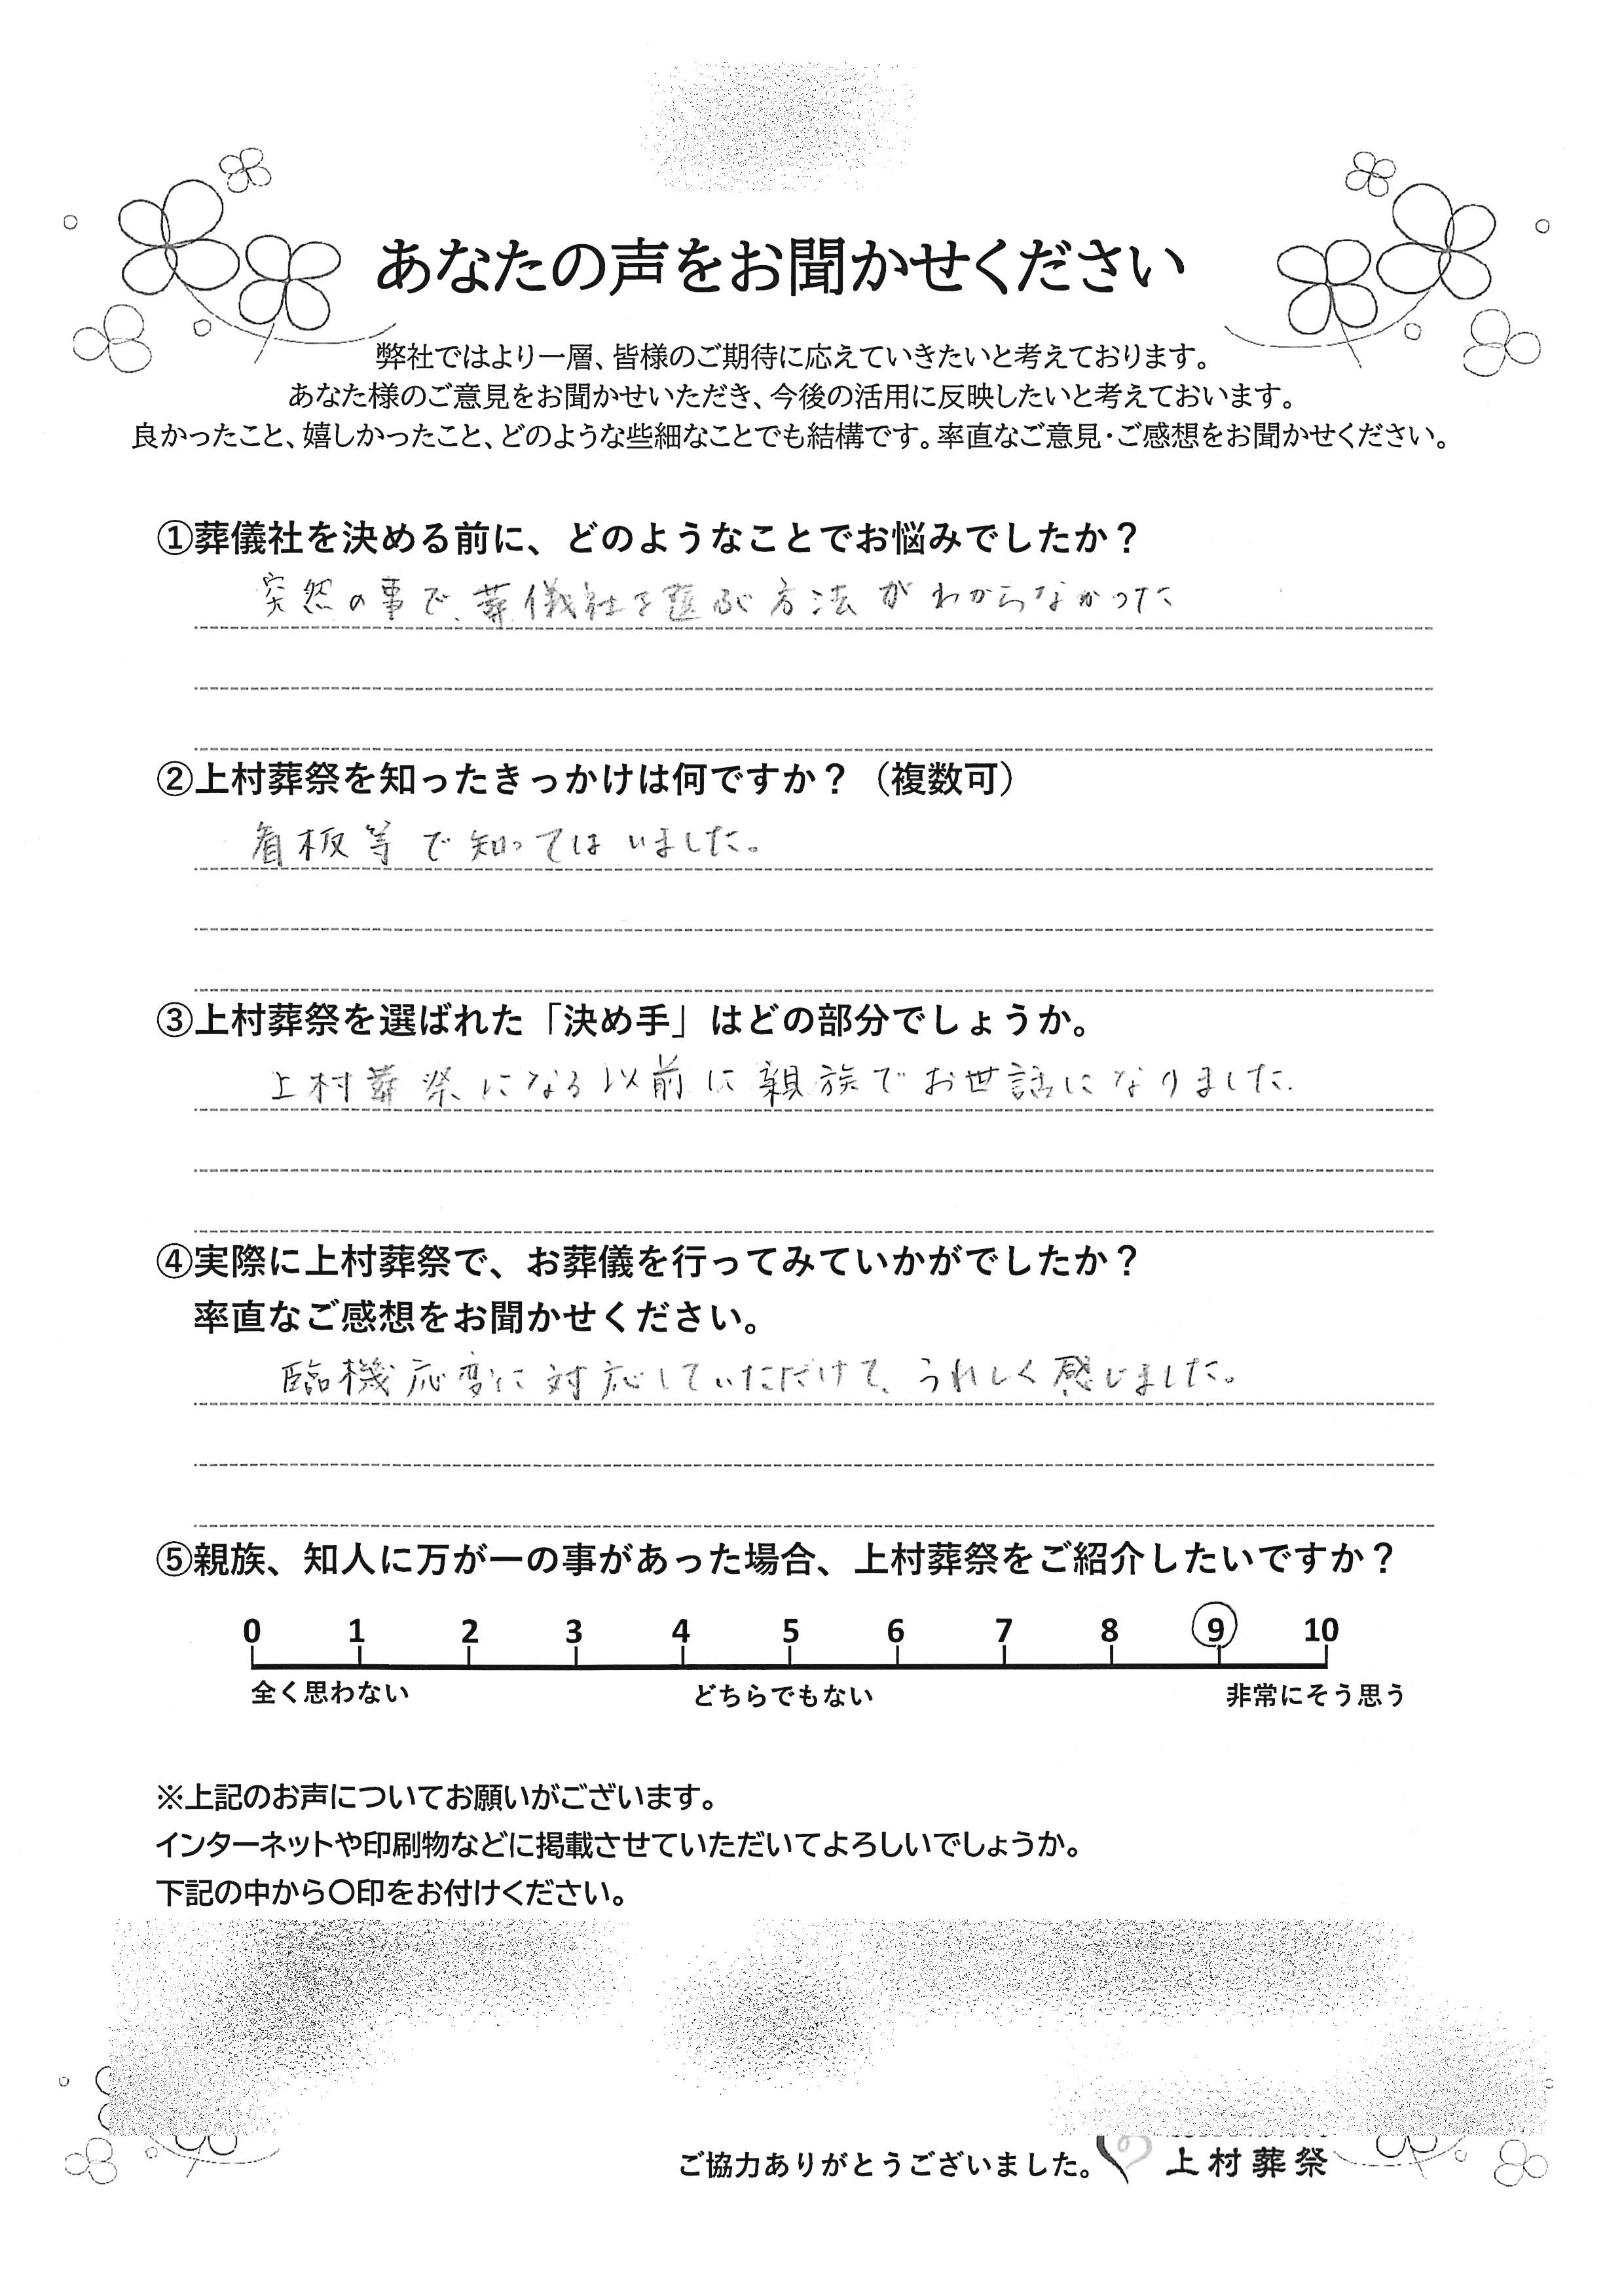 あなたの声をお聞かせください
弊社ではより一層、皆様のご期待に応えていきたいと考えております。
あなた様のご意見をお聞かせいただき、今後の活用に反映したいと考えておいます。
良かったこと、嬉しかったこと、どのような些細なことでも結構です。率直なご意見・ご感想をお聞かせください。
①葬儀社を決める前に、どのようなことでお悩みでしたか？
突然の事で、葬儀社を選ぶ方法がわからなかった
②上村葬祭を知ったきっかけは何ですか？（複数可）
看板等で知ってはいました。
③上村葬祭を選ばれた「決め手」はどの部分でしょうか。
上村葬祭になる以前に親族でお世話になりました.
④実際に上村葬祭で、お葬儀を行ってみていかがでしたか？
率直なご感想をお聞かせください。
臨機応変に対応していただけて、うれしく感じました。
⑤親族、知人に万が一の事があった場合、上村葬祭をご紹介したいですか？
0 1 2 3 4 5 6 7 8 9 10
全く思わない どちらでもない 非常にそう思う
※上記のお声についてお願いがございます。
インターネットや印刷物などに掲載させていただいてよろしいでしょうか。
下記の中から〇印をお付けください。
ご協力ありがとうございました。 上村葬祭